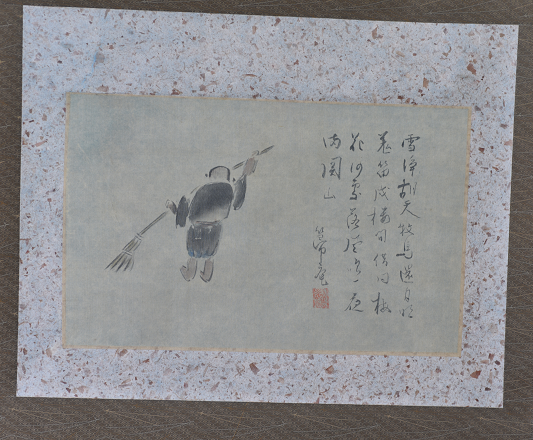 雪浄胡天牧馬還月明
羌笛戍樓間借問梅
花何處落風吹一夜
満関山